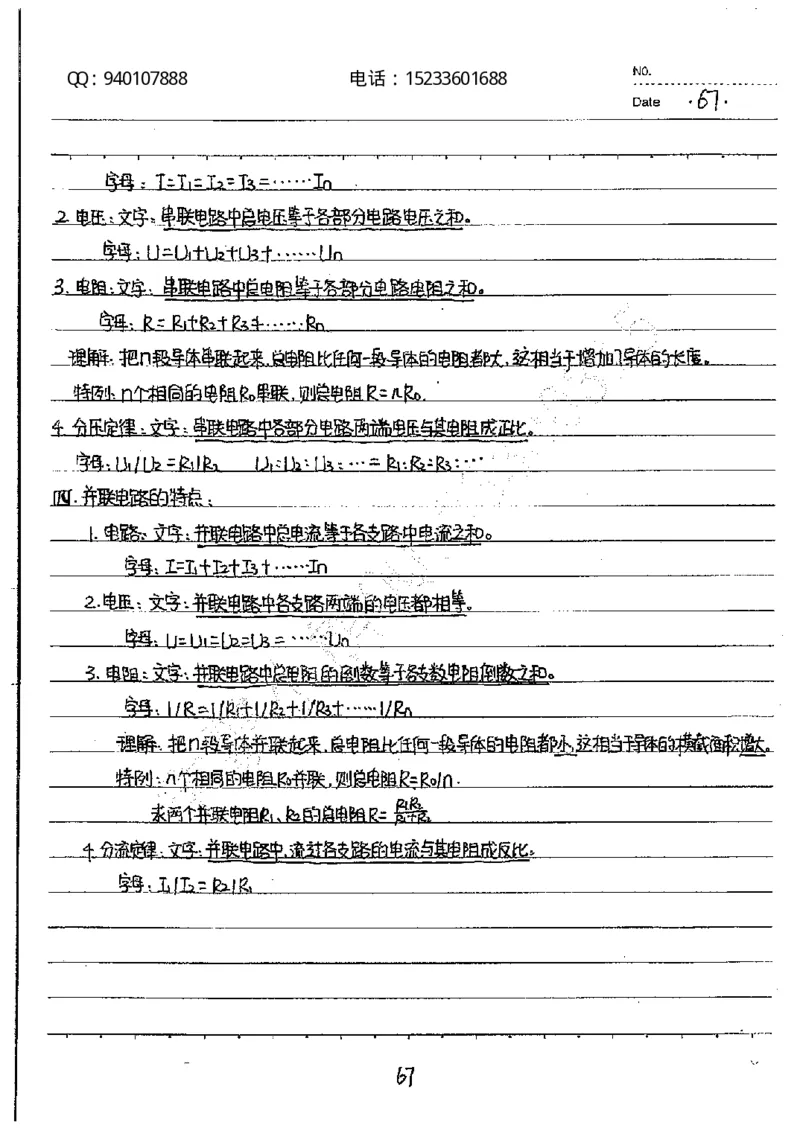 QQ：940107888 电话：15233601688 NO.
Date ·67·
字母：I=I₁=I₂=I₃=……In
2.电压：文字：串联电路中总电压等于各部分电路电压之和。
字母：U=U₁+U₂+U₃+……Un
3.电阻：文字：串联电路中总电阻等于各部分电路电阻之和。
字母：R=R₁+R₂+R₃+……Rn
理解：把n段导体串联起来，总电阻比任何一段导体的电阻都大，这相当于增加了导体的长度。
特例：n个相同的电阻R₀串联，则总电阻R=nR₀.
4.分压定律：文字：串联电路中各部分电路两端电压与其电阻成正比。
字母：U₁/U₂=R₁/R₂ U₁:U₂:U₃:…=R₁:R₂:R₃:…
四.并联电路的特点：
1.电路：文字：并联电路中总电流等于各支路中电流之和。
字母：I=I₁+I₂+I₃+……In
2.电压：文字：并联电路中各支路两端的电压都相等。
字母：U=U₁=U₂=U₃=……Un
3.电阻：文字：并联电路中总电阻的倒数等于各支数电阻倒数之和。
字母：1/R=1/R₁+1/R₂+1/R₃+……1/Rn
理解：把n段导体并联起来，总电阻比任何一段导体的电阻都小，这相当于导体的横截面积增大。
特例：n个相同的电阻R₀并联，则总电阻R=R₀/n.
求两个并联电阻R₁、R₂的总电阻R=R₁R₂/R₁+R₂
4.分流定律：文字：并联电路中，流过各支路的电流与其电阻成反比。
字母：I₁/I₂=R₂/R₁
67